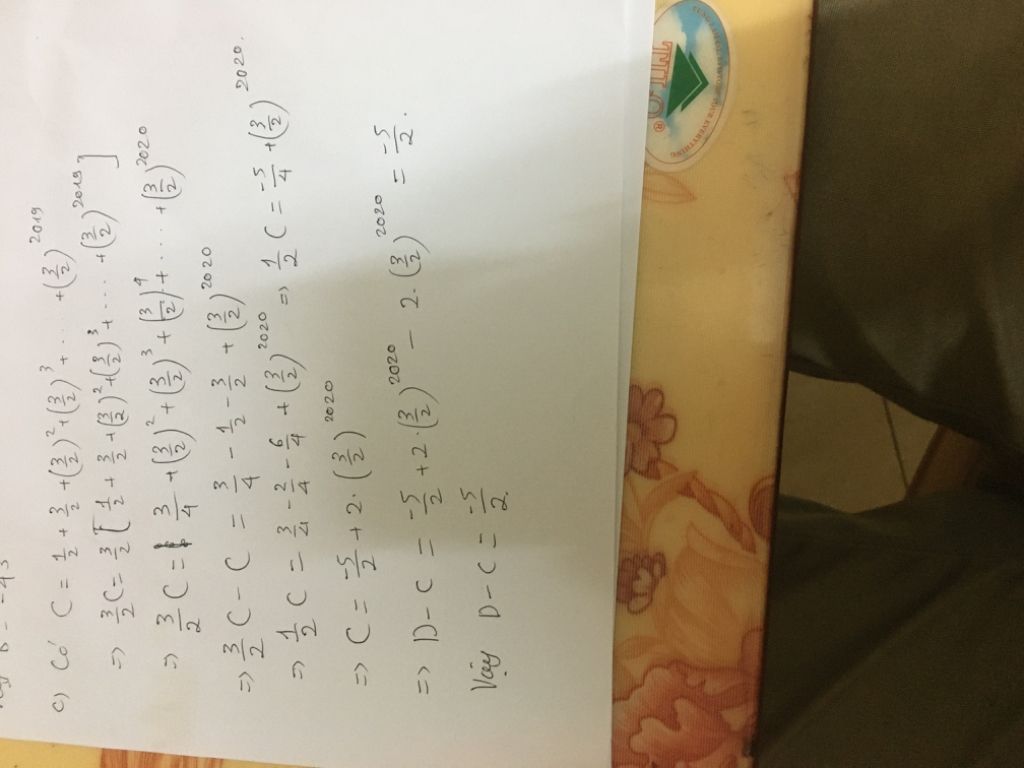 c) Có C = 1/2 + 3/2 + (3/2)^2 + (3/2)^3 + .... + (3/2)^2019
=> 3/2 C = 3/2 [ 1/2 + 3/2 + (3/2)^2 + (3/2)^3 + .... + (3/2)^2019 ]
=> 3/2 C = 3/4 + (3/2)^2 + (3/2)^3 + (3/2)^4 + ..... + (3/2)^2020
=> 3/2 C - C = 3/4 - 1/2 - 3/2 + (3/2)^2020
=> 1/2 C = 3/4 - 2/4 - 6/4 + (3/2)^2020 => 1/2 C = -5/4 + (3/2)^2020.
=> C = -5/2 + 2. (3/2)^2020
=> D - C = -5/2 + 2.(3/2)^2020 - 2.(3/2)^2020 = -5/2.
Vậy D - C = -5/2.